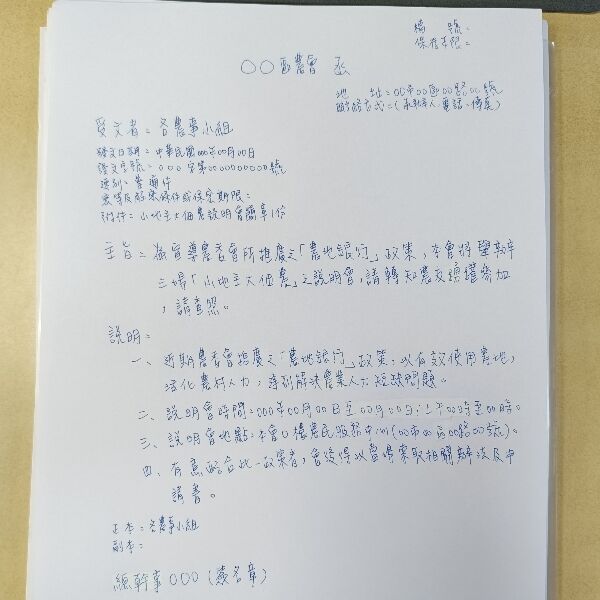 檔　　號：
保存年限：
○○區農會　函
地　　址：○○市○○區○○路○○號
聯絡方式：（承辦人、電話、傳真）
受文者：各農事小組
發文日期：中華民國000年00月00日
發文字號：○○○字第0000000000號
速別：普通件
密等及解密條件或保密期限：
附件：小地主大佃農說明會簡章1份
主旨：為宣導農委會所推廣之「農地銀行」政策，本會將舉辦
三場「小地主大佃農」之說明會，請轉知農友踴躍參加
，請查照。
說明：
一、近期農委會推廣之「農地銀行」政策，以有效使用農地，
活化農村人力，達到解決農業人力短缺問題。
二、說明會時間：000年00月00日至00月00日，上午00時至00時。
三、說明會地點：本會0樓農民服務中心(00市00區00路00號)。
四、有意配合此一政策者，會後得以當場索取相關辦法及申
請書。
正本：各農事小組
副本：
總幹事○○○（簽名章）